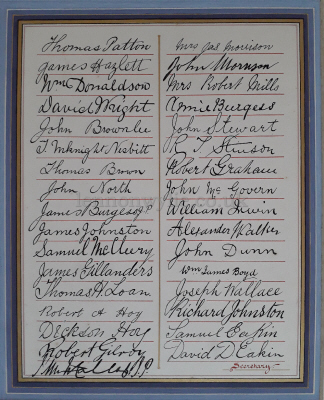 Thomas Patton
James Hazlett
Wm Donaldson
David Wright
John Brownlee
T. McKnight Nesbitt
Thomas Brown
John North
James Burgess
James Johnston
Samuel McCleery
James Gillanders
Thomas H. Loan
Robert A Hoy
Deckson Hoy
Robert Gilroy
Mrs Jas Morrison
John Morrison
Mrs Robert Mills
Burgess
John Stewart
R. T. Stinson
Robert Graham
John Mc Govern
William Irwin
Alexander Walker
John Dunn
Wm James Boyd
Joseph Wallace
Richard Johnston
Samuel Eakin
David D Eakin
Secretary